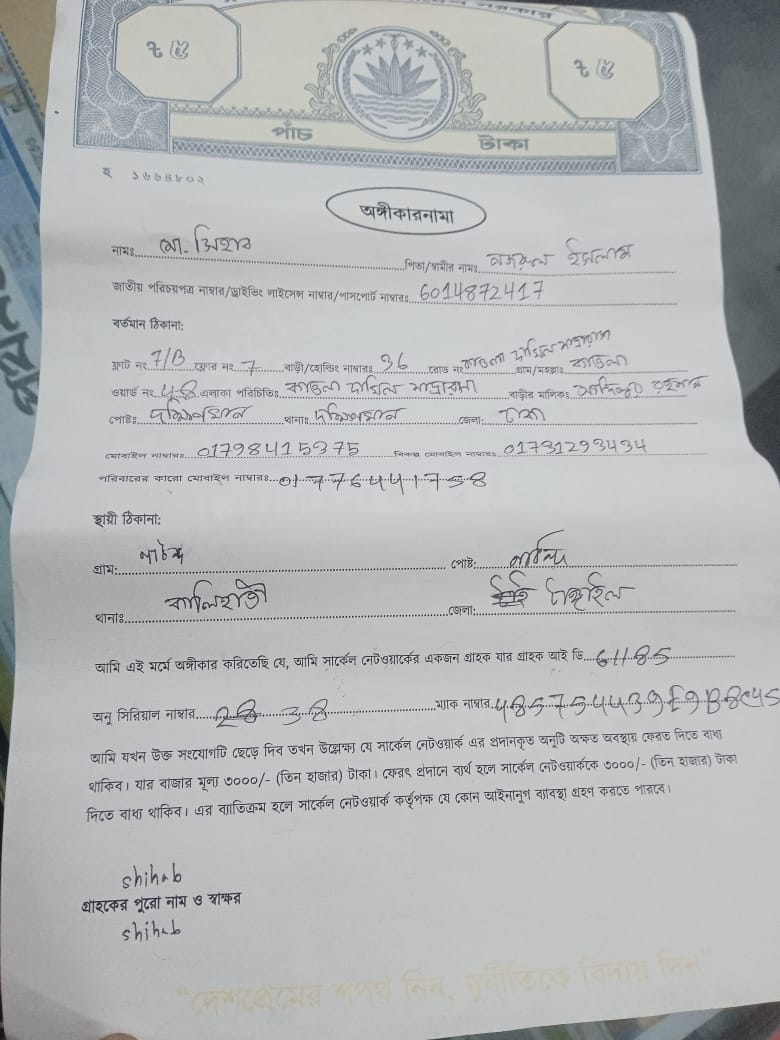 ৳ ৫ ৳ ৫
পাঁচ টাকা
ছ ১৬৬৪৮০২
অঙ্গীকারনামা
নামঃ মো. শিহাব পিতা/স্বামীর নামঃ নজরুল ইসলাম
জাতীয় পরিচয়পত্র নাম্বার/ড্রাইভিং লাইসেন্স নাম্বার/পাসপোর্ট নাম্বারঃ 6014872417
বর্তমান ঠিকানা:
ফ্লাট নং 7/B ফ্লোর নং 7 বাড়ী/হোল্ডিং নাম্বারঃ 36 রোড নং কাওলা দাখিল মাদ্রাসা গ্রাম/মহল্লাঃ কাওলা
ওয়ার্ড নং 48 এলাকা পরিচিতিঃ কাওলা দাখিল মাদ্রাসা বাড়ীর মালিকঃ রহমান
পোষ্টঃ দক্ষিণখান থানাঃ দক্ষিণখান জেলা: ঢাকা
মোবাইল নাম্বারঃ 01798415375 বিকল্প মোবাইল নাম্বারঃ 01731293434
পরিবারের কারো মোবাইল নাম্বারঃ 01776441758
স্থায়ী ঠিকানা:
গ্রাম: পোষ্ট:
থানাঃ কালিহাতী জেলা: টাঙ্গাইল
আমি এই মর্মে অঙ্গীকার করিতেছি যে, আমি সার্কেল নেটওয়ার্কের একজন গ্রাহক যার গ্রাহক আই ডি 61185
অনু সিরিয়াল নাম্বার 28 38 ম্যাক নাম্বার 485754439E9B8C45
আমি যখন উক্ত সংযোগটি ছেড়ে দিব তখন উল্লেক্ষ্য যে সার্কেল নেটওয়ার্ক এর প্রদানকৃত অনুটি অক্ষত অবস্থায় ফেরত দিতে বাধ্য
থাকিব। যার বাজার মূল্য ৩০০০/- (তিন হাজার) টাকা। ফেরৎ প্রদানে ব্যর্থ হলে সার্কেল নেটওয়ার্ককে ৩০০০/- (তিন হাজার) টাকা
দিতে বাধ্য থাকিব। এর ব্যাতিক্রম হলে সার্কেল নেটওয়ার্ক কর্তৃপক্ষ যে কোন আইনানুগ ব্যাবস্থা গ্রহণ করতে পারবে।
shihab
গ্রাহকের পুরো নাম ও স্বাক্ষর
shihab
"দেশপ্রেমের শপথ নিন, দুর্নীতিকে বিদায় দিন"